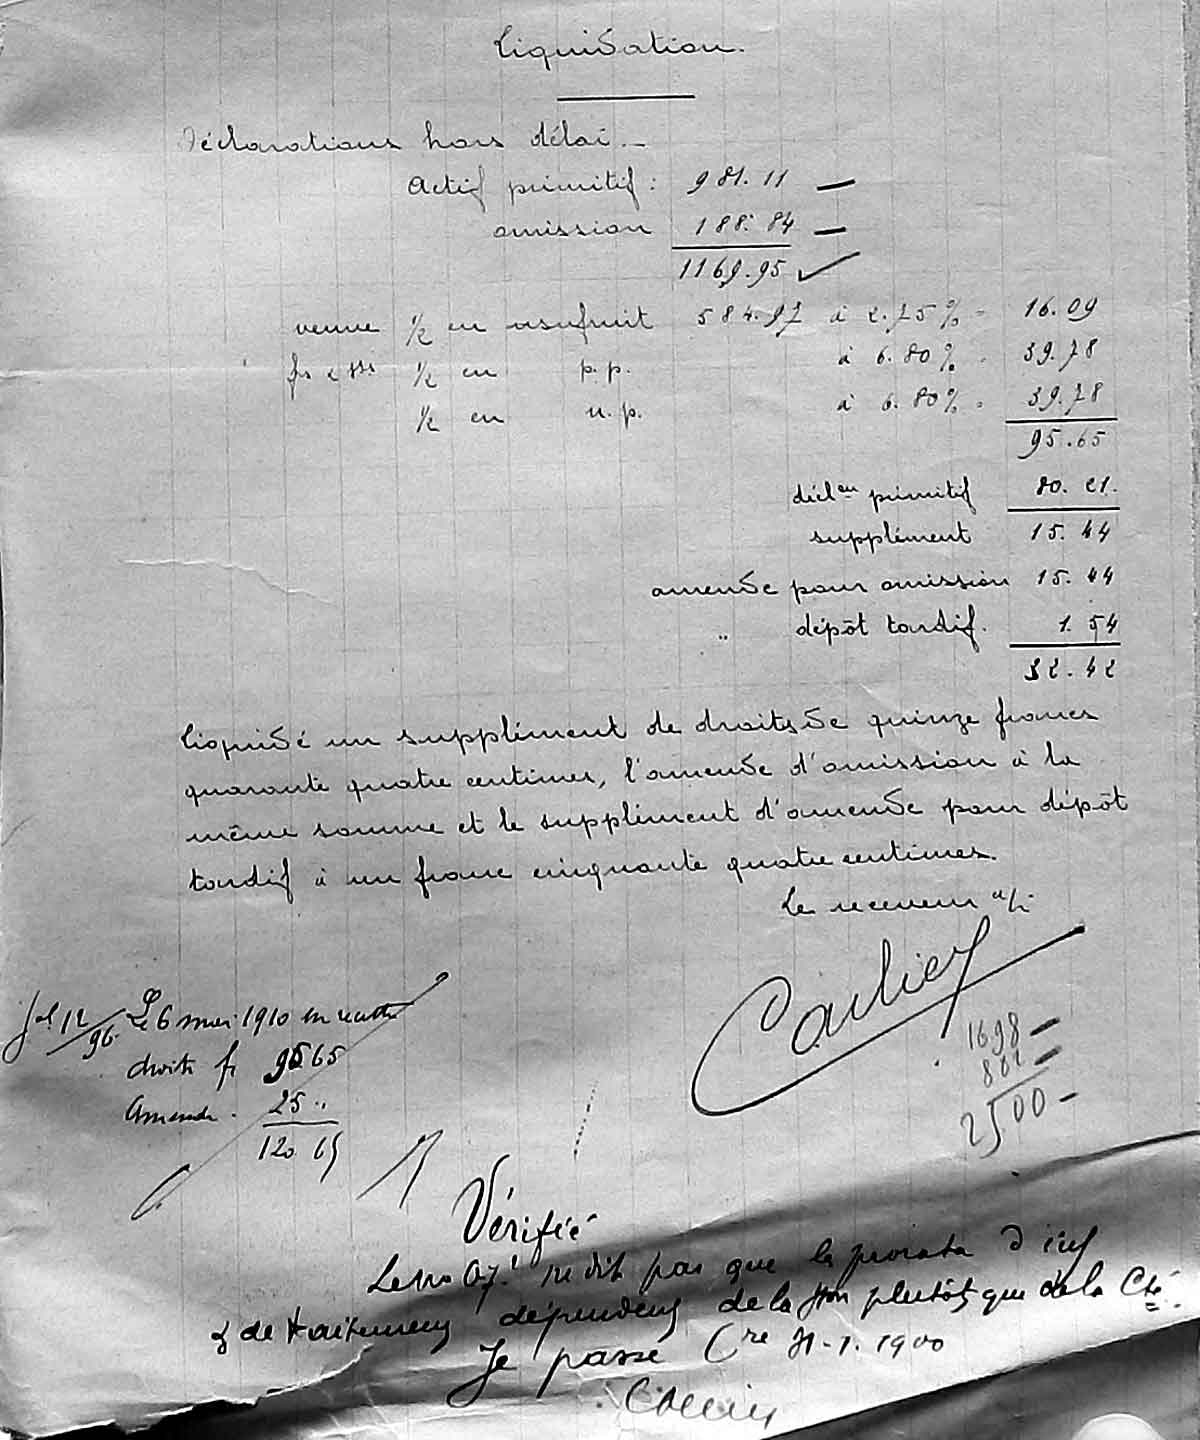 Liquidation.
Déclarations hors délai. —
Actif primitif : 981.11 —
omission 188.84 —
1169.95 ✓
veuve ½ en usufruit 584.97 à 2.75 % = 16.09
½ en p.p. à 6.80 % = 39.78
½ en n.p. à 6.80 % = 39.78
95.65
décl.on primitif 80.21.
supplément 15.44
amende pour omission 15.44
" dépôt tardif. 1.54
32.42
Liquidé un supplément de droits de quinze francs
quarante quatre centimes, l'amende d'omission à la
même somme et le supplément d'amende pour dépôt
tardif à un franc cinquante quatre centimes.
Le receveur
Carlier
12/96 Le 6 mai 1910 en recette
droits fr 95 65
Amende . 25 "
120 65
1698 —
802 —
2500 —
Vérifié
dit pas que le prorata
& de traitement dépendent de la plutôt que de la Cté.
Je passe 1900